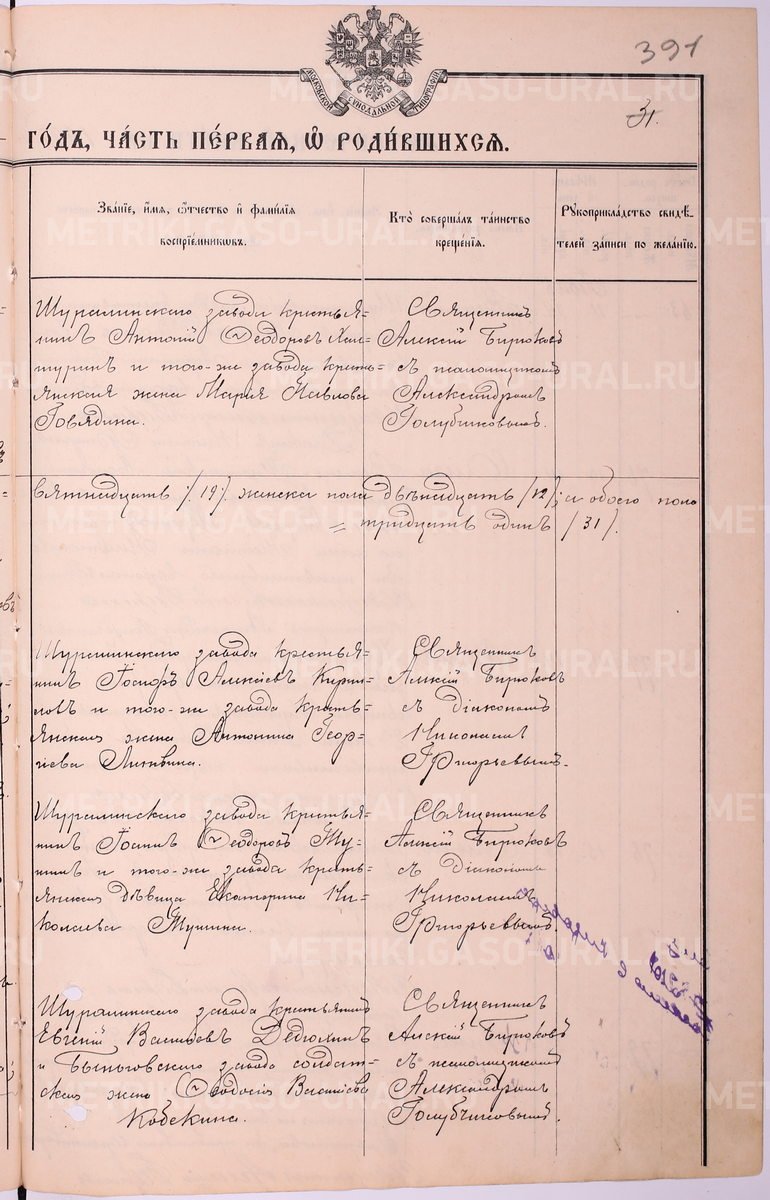 391
31.
МОСКОВСКОЙ СѴНОДАЛЬНОЙ ТИПОГРАФІИ
ГО́ДЪ, ЧА́СТЬ ПЕ́РВАЯ, Ѽ РОДИ́ВШИХСЯ.
Зва́нїе, и҆́мя, ѻ҆́тчество и҆ фамі́лїя
воспрїе́мниковъ.
Кто̀ соверша́лъ та́инство
креще́нїя.
Рꙋкоприкла́дство свидѣ́-
телей за́писи по жела́нїю.
Шуралинскаго завода крестья=
нинъ Антоній Ѳеодоровъ
и того-же завода кресть=
янская жена Марія Павлова
Говядина.
Священникъ
Алексій Бирюковъ
съ псаломщикомъ
Александромъ
Голубчиковымъ.
вятнадцать /19/. женска пола двѣнадцать /12/; а обоего пола
= тридцать одинъ /31/.
Шуралинскаго завода крестья=
нинъ Іосифъ Алексіевъ Кирил=
ловъ и того-же завода кресть=
янская жена Антонина Геор=
гіева
Священникъ
Алексій Бирюковъ
съ Діакономъ
Николаемъ
Григорьевымъ.
Шуралинскаго завода крестья=
нинъ Іоаннъ Ѳеодоровъ Ту=
нинъ и того-же завода кресть=
янская дѣвица Екатерина Ни=
колаева Тунина.
Священникъ
Алексій Бирюковъ
съ Діакономъ
Николаемъ
Григорьевымъ.
Шуралинскаго завода крестьянинъ
Евгеній Василіевъ Дедюхинъ
и Быньговскаго завода солдат=
ская жена Ѳеодосія Василіева
Кобекина.
Священникъ
Алексій Бирюковъ
съ псаломщикомъ
Александромъ
Голубчиковымъ.
METRIKI.GASO-URAL.RU